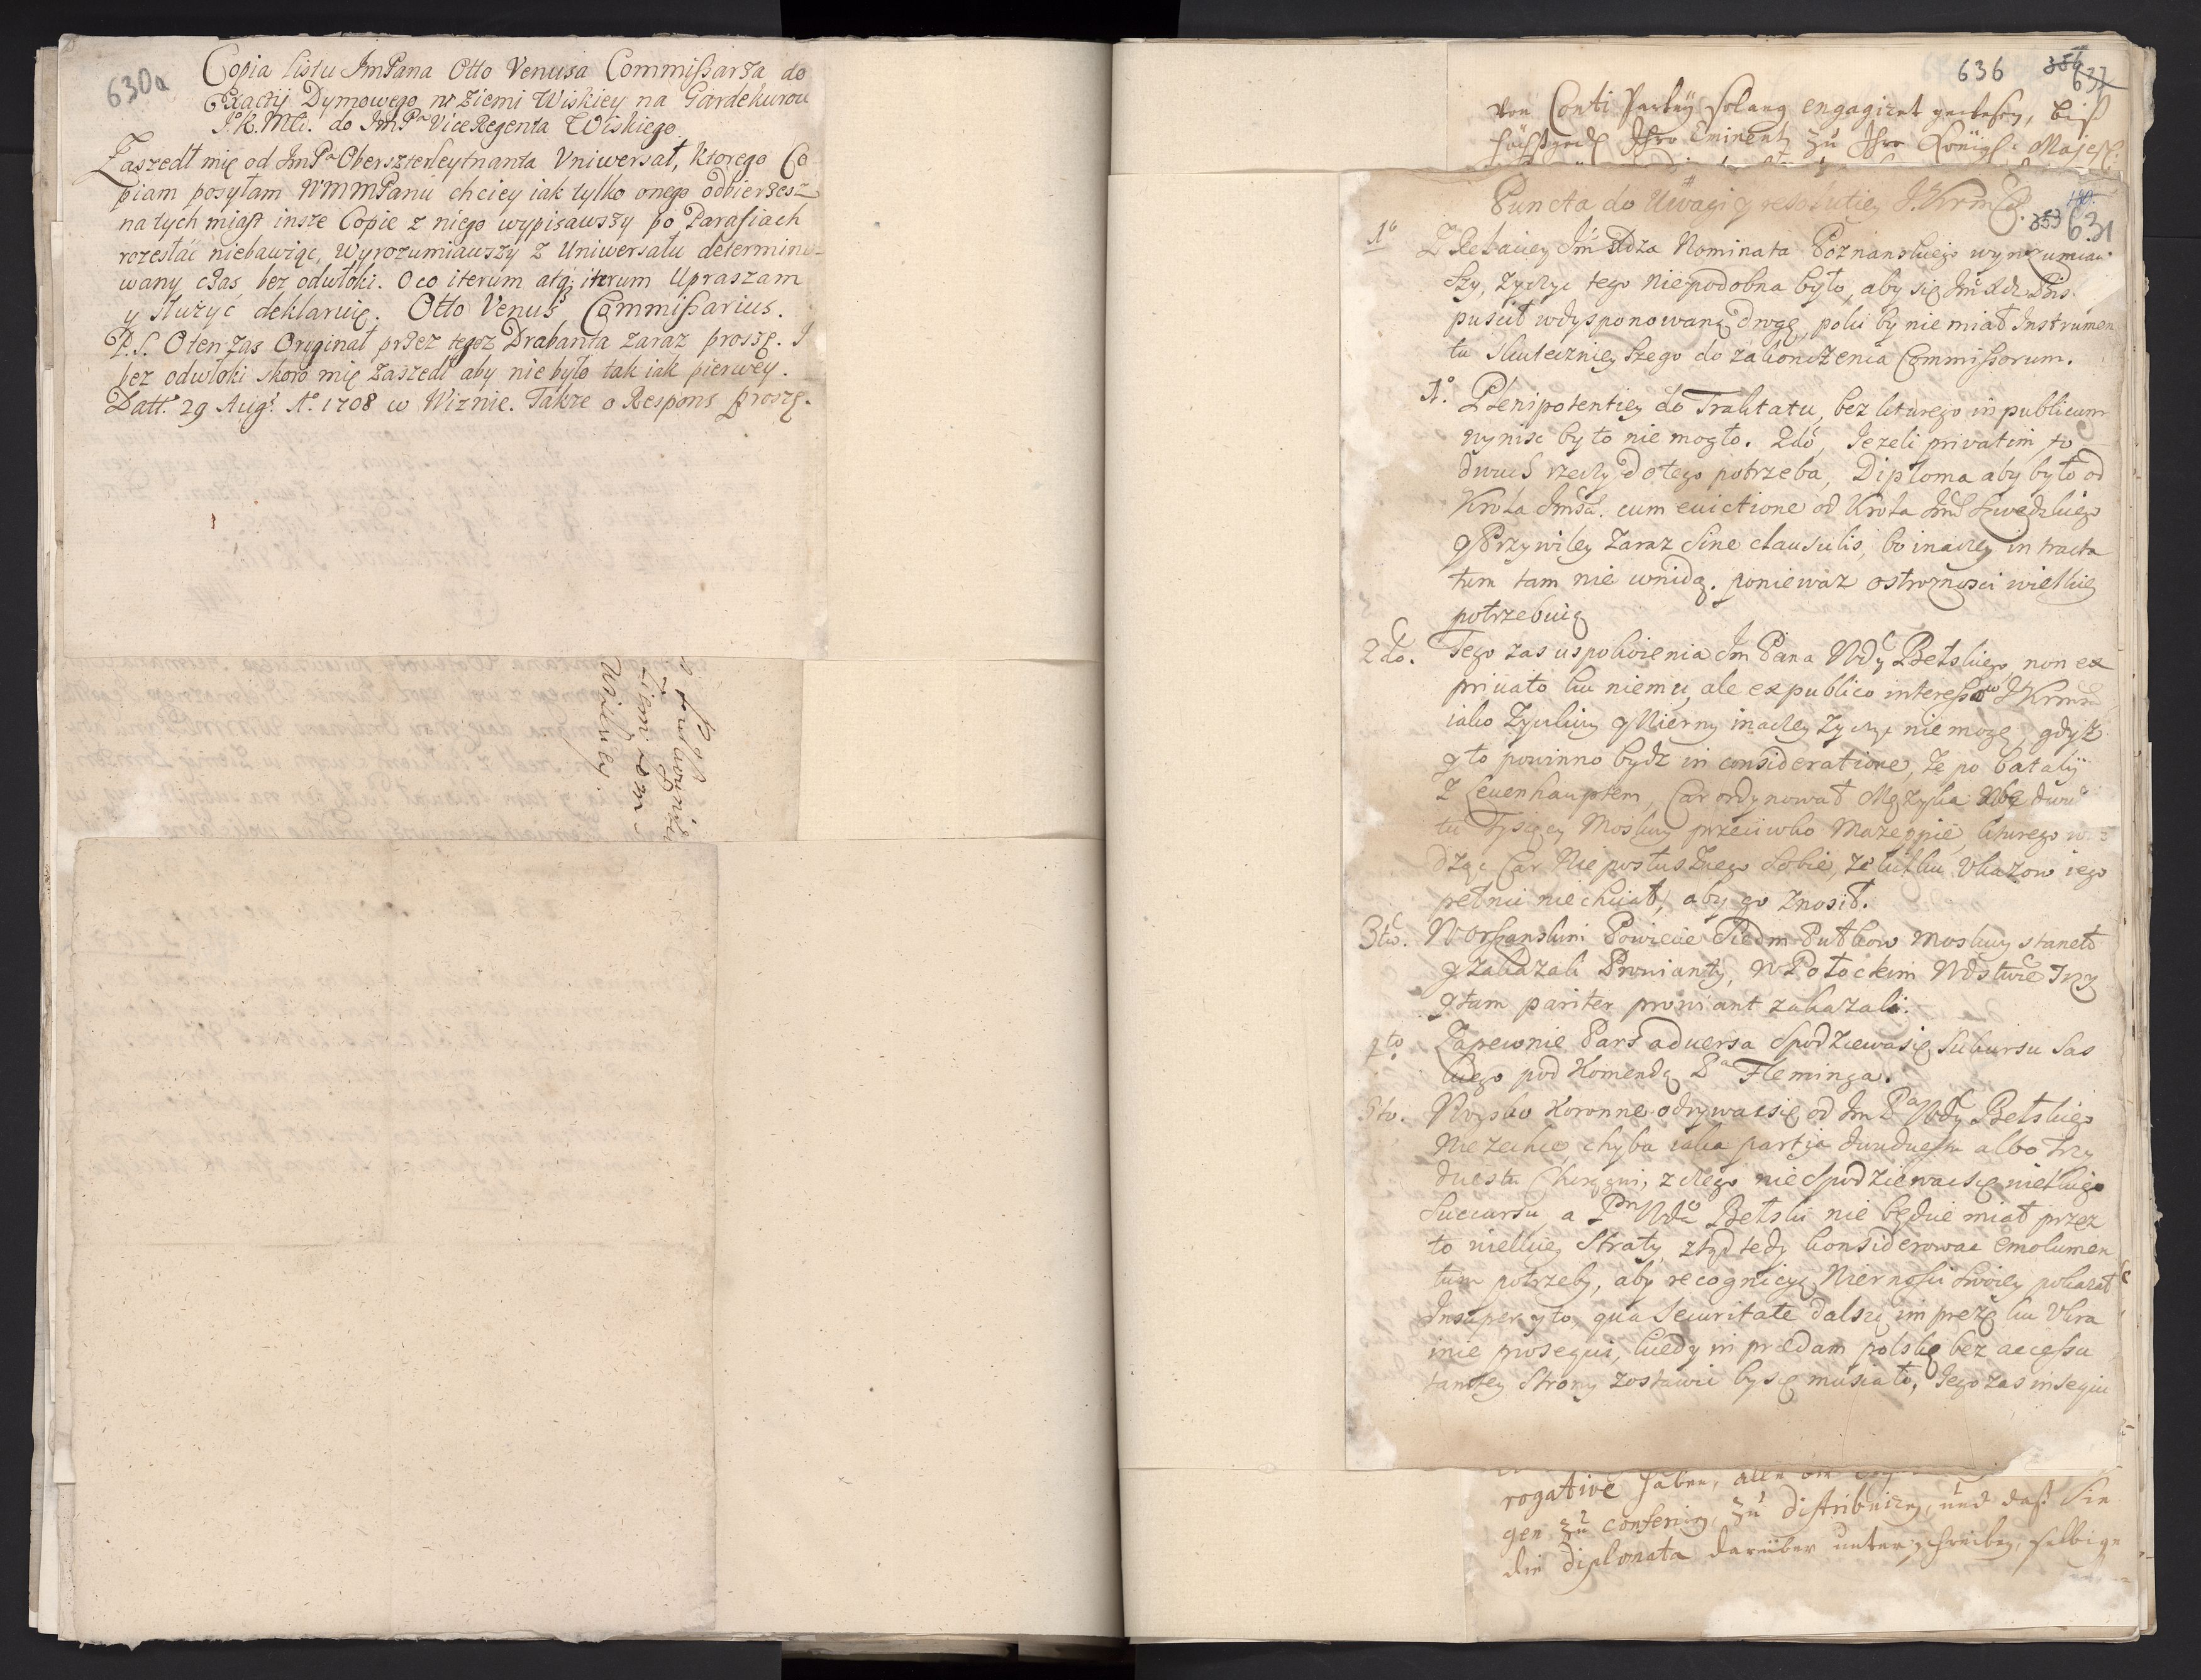 630a
Copia listu ImPana Otto Venusa Commissarza do
Exactij Dymowego w Ziemi Wiskiey na Gardekurow
J.K.Mći. do ImPa ViceRegenta Wiskiego.
Zaszedł mię od ImPa Oberszterleytnanta Vniwersał, ktorego Co
piam posyłam WMMPanu chciey iak tylko onego odbierzesz
na tych miast insze Copie z niego wypisawszy po Parafiach
rozesłać niebawiąc, Wyrozumiawszy z Uniwersału determino-
wany czas bez odwłoki. O co iterum atq; iterum Upraszam
y służyć deklaruię. Otto Venus Commissarius.
P.S. O ten zas Oryginał przez tegoz Drabanta zaraz proszę. I
bez odwłoki skoro mię zaszedł aby nie było tak iak pierwey.
Datt. 29 Augt. Ao. 1708 w Wiznie. Takze o Respons proszę.
Wiskiey
636 637
von Conti Partey solang engagiret gewesen, biß
Ihro Eminentz zu Ihro Königl. Majest.
Puncta do Uwagi y resolutiey J.Krmści.
353 631
1o Z Relaciey Im Xdza Nominata Poznanskiego wyrozumiaw
szy, zyczyc tego niepodobna było, aby się Im Xdz
puscił wdysponowaną drogę, poki by nie miał Instrumen
tu skutecznieyszego do zakonczenia Commissorum.
1o. Plenipotentiey do Traktatu, bez ktorego in publicum
wynisc by to nie mogło. 2do, Jezeli privatim, to
dwuch rzeczy do tego potrzeba, Diploma aby było od
Krola Jmści. cum evictione od Krola Jmści Szwedzkiego
y Przywiley zaraz sine clausulis, bo inaczey in tracta
tum tam nie wnidą. poniewaz ostroznosci wielkiey
potrzebuią
2do. Tego zas uspokoienia Im Pana Wdy Bełskiego non ex
privato ku niemu, ale ex publico interessów J Krmści
iako Zyczliwy y Wierny inaczey zyczyc nie mogę, gdyz
y to powinno bydz in consideratione, ze po bataliy
z Levenhauptem, Car ordynował Męzyka
tu Tysięcy Moskwy przeciwko Mazeppie, ktorego wi
dząc Car Nieposłusznego sobie, ze kilku Ukazow iego
pełnic nie chciał, aby go znosił.
3tio. W Orszanskim Powiecie Siedm Pułkow Moskwy staneło
y zakazali Prowianty, w Połockim Wdstwie Trzy
y tam pariter prowiant zakazali.
4to Zapewnie Pars adversa spodziewa się sukursu Sas
kiego pod Komendą Pa Fleminga.
5to. Woysko Koronne odrywac się od Im Pa Wdy Bełskiego
nie zechce, chyba iaka partya dwudziestu albo trzy
dziestu Chorągwi, z czego nie spodziewac się wielkiego
succursu, a Pan Wda Bełski nie będzie miał przez
to wielkiey straty, ztąd tedy konsiderowac emolumen
tum potrzeby, aby recognicyą Wiernosci swoiey pokazał
Insuper y to, qua securitate dalszą imprezę ku Ukra
inie prosequi, kiedy in praedam polskę bez accessu
tamtey strony zostawic by się musiało, Jego zas insequi
rogative haben,
gen zu conferiren, zu distribuiren, und daß Sie
die diplomata darüber unterschreiben, selbige